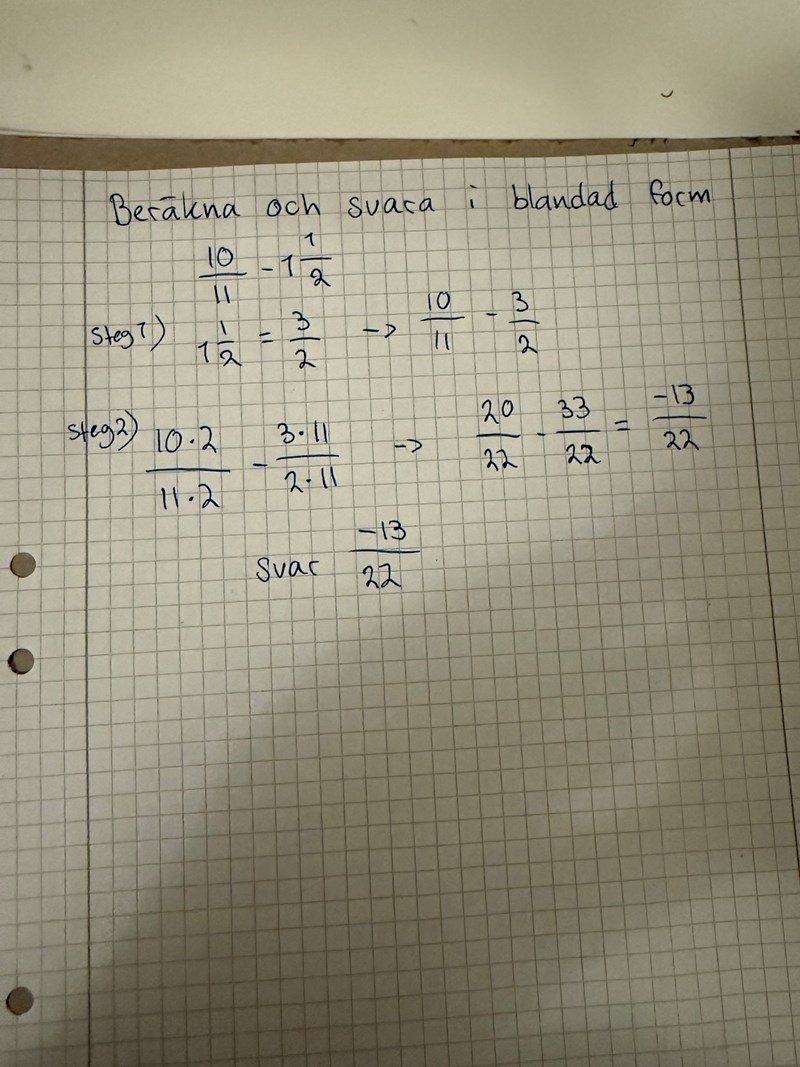 Beräkna och svara i blandad form
10/11 - 1 1/2
Steg 1) 1 1/2 = 3/2 -> 10/11 - 3/2
Steg 2) 10·2/11·2 - 3·11/2·11 -> 20/22 - 33/22 = -13/22
Svar -13/22